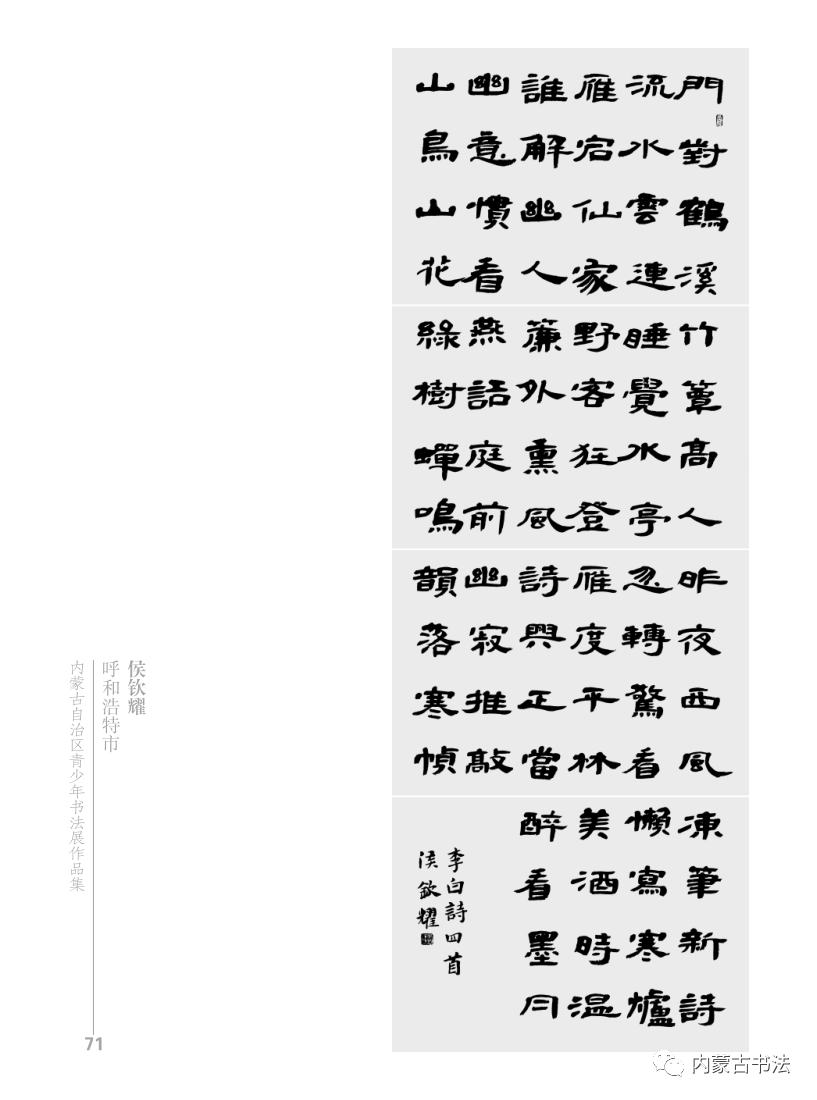 門對鶴溪
流水雲連
雁宕仙家
誰解幽人
幽意慣看
山鳥山花
竹簟高人
睡覺水亭
野客狂登
簾外熏風
燕語庭前
綠樹蟬鳴
昨夜西風
忽轉驚看
雁度平林
詩興正當
幽寂推敲
韻落寒幀
凍筆新詩
懶寫寒爐
美酒時温
醉看墨月
李白詩四首
侯欽耀
侯钦耀
呼和浩特市
内蒙古自治区青少年书法展作品集
71
内蒙古书法